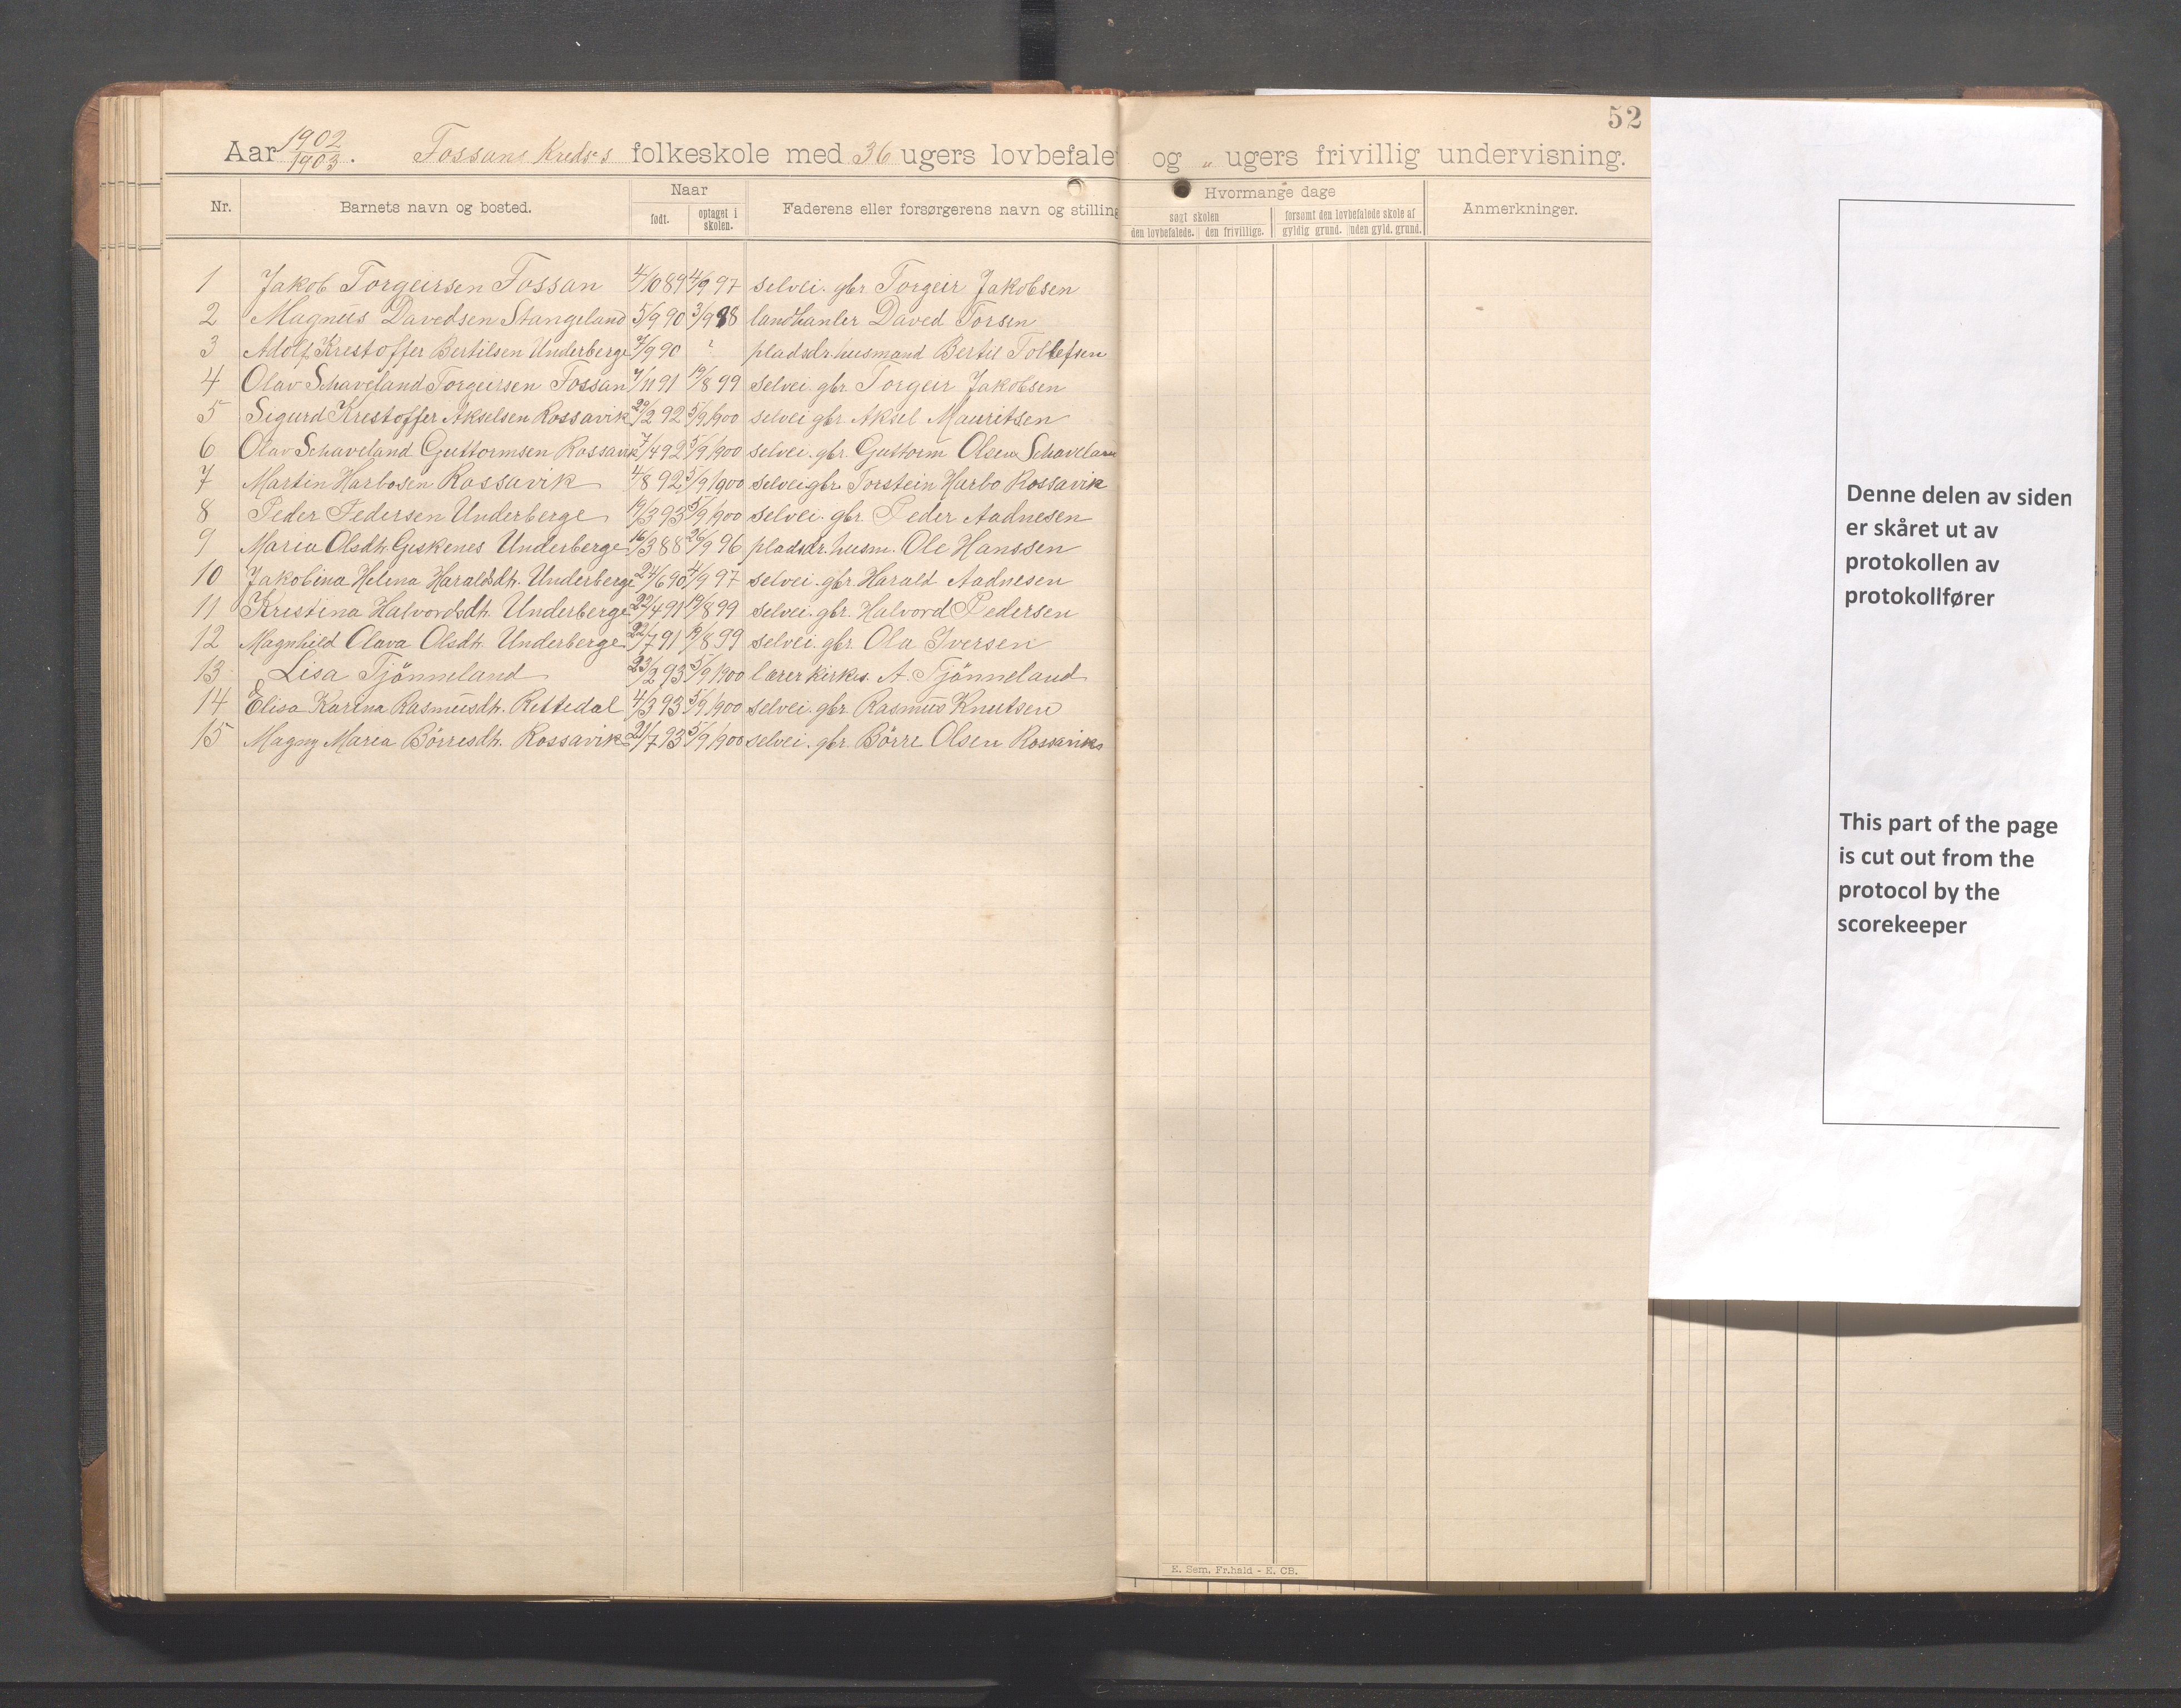 52
Aar 1902/1903. Fossans Kreds's folkeskole med 36 ugers lovbefalet og „ ugers frivillig undervisning.
Nr. Barnets navn og bosted. Naar Faderens eller forsørgerens navn og stilling Hvormange dage Anmerkninger.
født. optaget i skolen. søgt skolen forsømt den lovbefalede skole af
den lovbefalede. den frivillige. gyldig grund. uden gyld. grund.
1 Jakob Torgeirsen Fossan 4/10 89 4/9 97 selvei. gbr Torgeir Jakobsen
2 Magnus Davedsen Stangeland 5/9 90 3/9 98 landhanler Daved Torsen
3 Adolf Krestoffer Bertilsen Underberge 7/9 90 ? pladsdr. husmand Bertil Tollefsen
4 Olav Schaveland Torgeirsen Fossan 7/11 91 19/8 99 selvei. gbr. Torgeir Jakobsen
5 Sigurd Krestoffer Akselsen Rossavik 29/2 92 5/9 1900 selvei gbr. Aksel Mauritsen
6 Olav Schaveland Guttormsen Rossavik 7/4 92 5/9 1900 selvei. gbr. Guttorm Olsen Schaveland
7 Martin Harbosen Rossavik 4/8 92 5/9 1900 selvei gbr. Torstein Harbo Rossavik
8 Peder Pedersen Underberge 19/3 93 5/9 1900 selvei. gbr. Peder Aadnesen
9 Maria Olsdtr. Geskenes Underberge 16/3 88 26/9 96 pladsdr. husm. Ole Hanssen
10 Jakobina Helena Haraldsdtr. Underberge 24/6 90 4/9 97 selvei. gbr. Harald Aadnesen
11 Kristina Halvordsdtr. Underberge 22/4 91 19/8 99 selvei. gbr. Halvord Pedersen
12 Magnhild Olava Olsdtr. Underberge 22/7 91 19/8 99 selvei. gbr. Ola Iversen
13 Lisa Tjönneland 23/2 93 5/9 1900 lærer kirkes. A. Tjönneland
14 Elisa Karina Rasmusdtr. Rettedal 4/3 93 5/9 1900 selvei. gbr. Rasmus Knutsen
15 Magny Marea Börresdtr. Rossavik 21/7 93 5/9 1900 selvei. gbr. Börre Olsen Rossavik
E. Sem. Fr.hald - E. CB.
Denne delen av siden
er skåret ut av
protokollen av
protokollfører
This part of the page
is cut out from the
protocol by the
scorekeeper